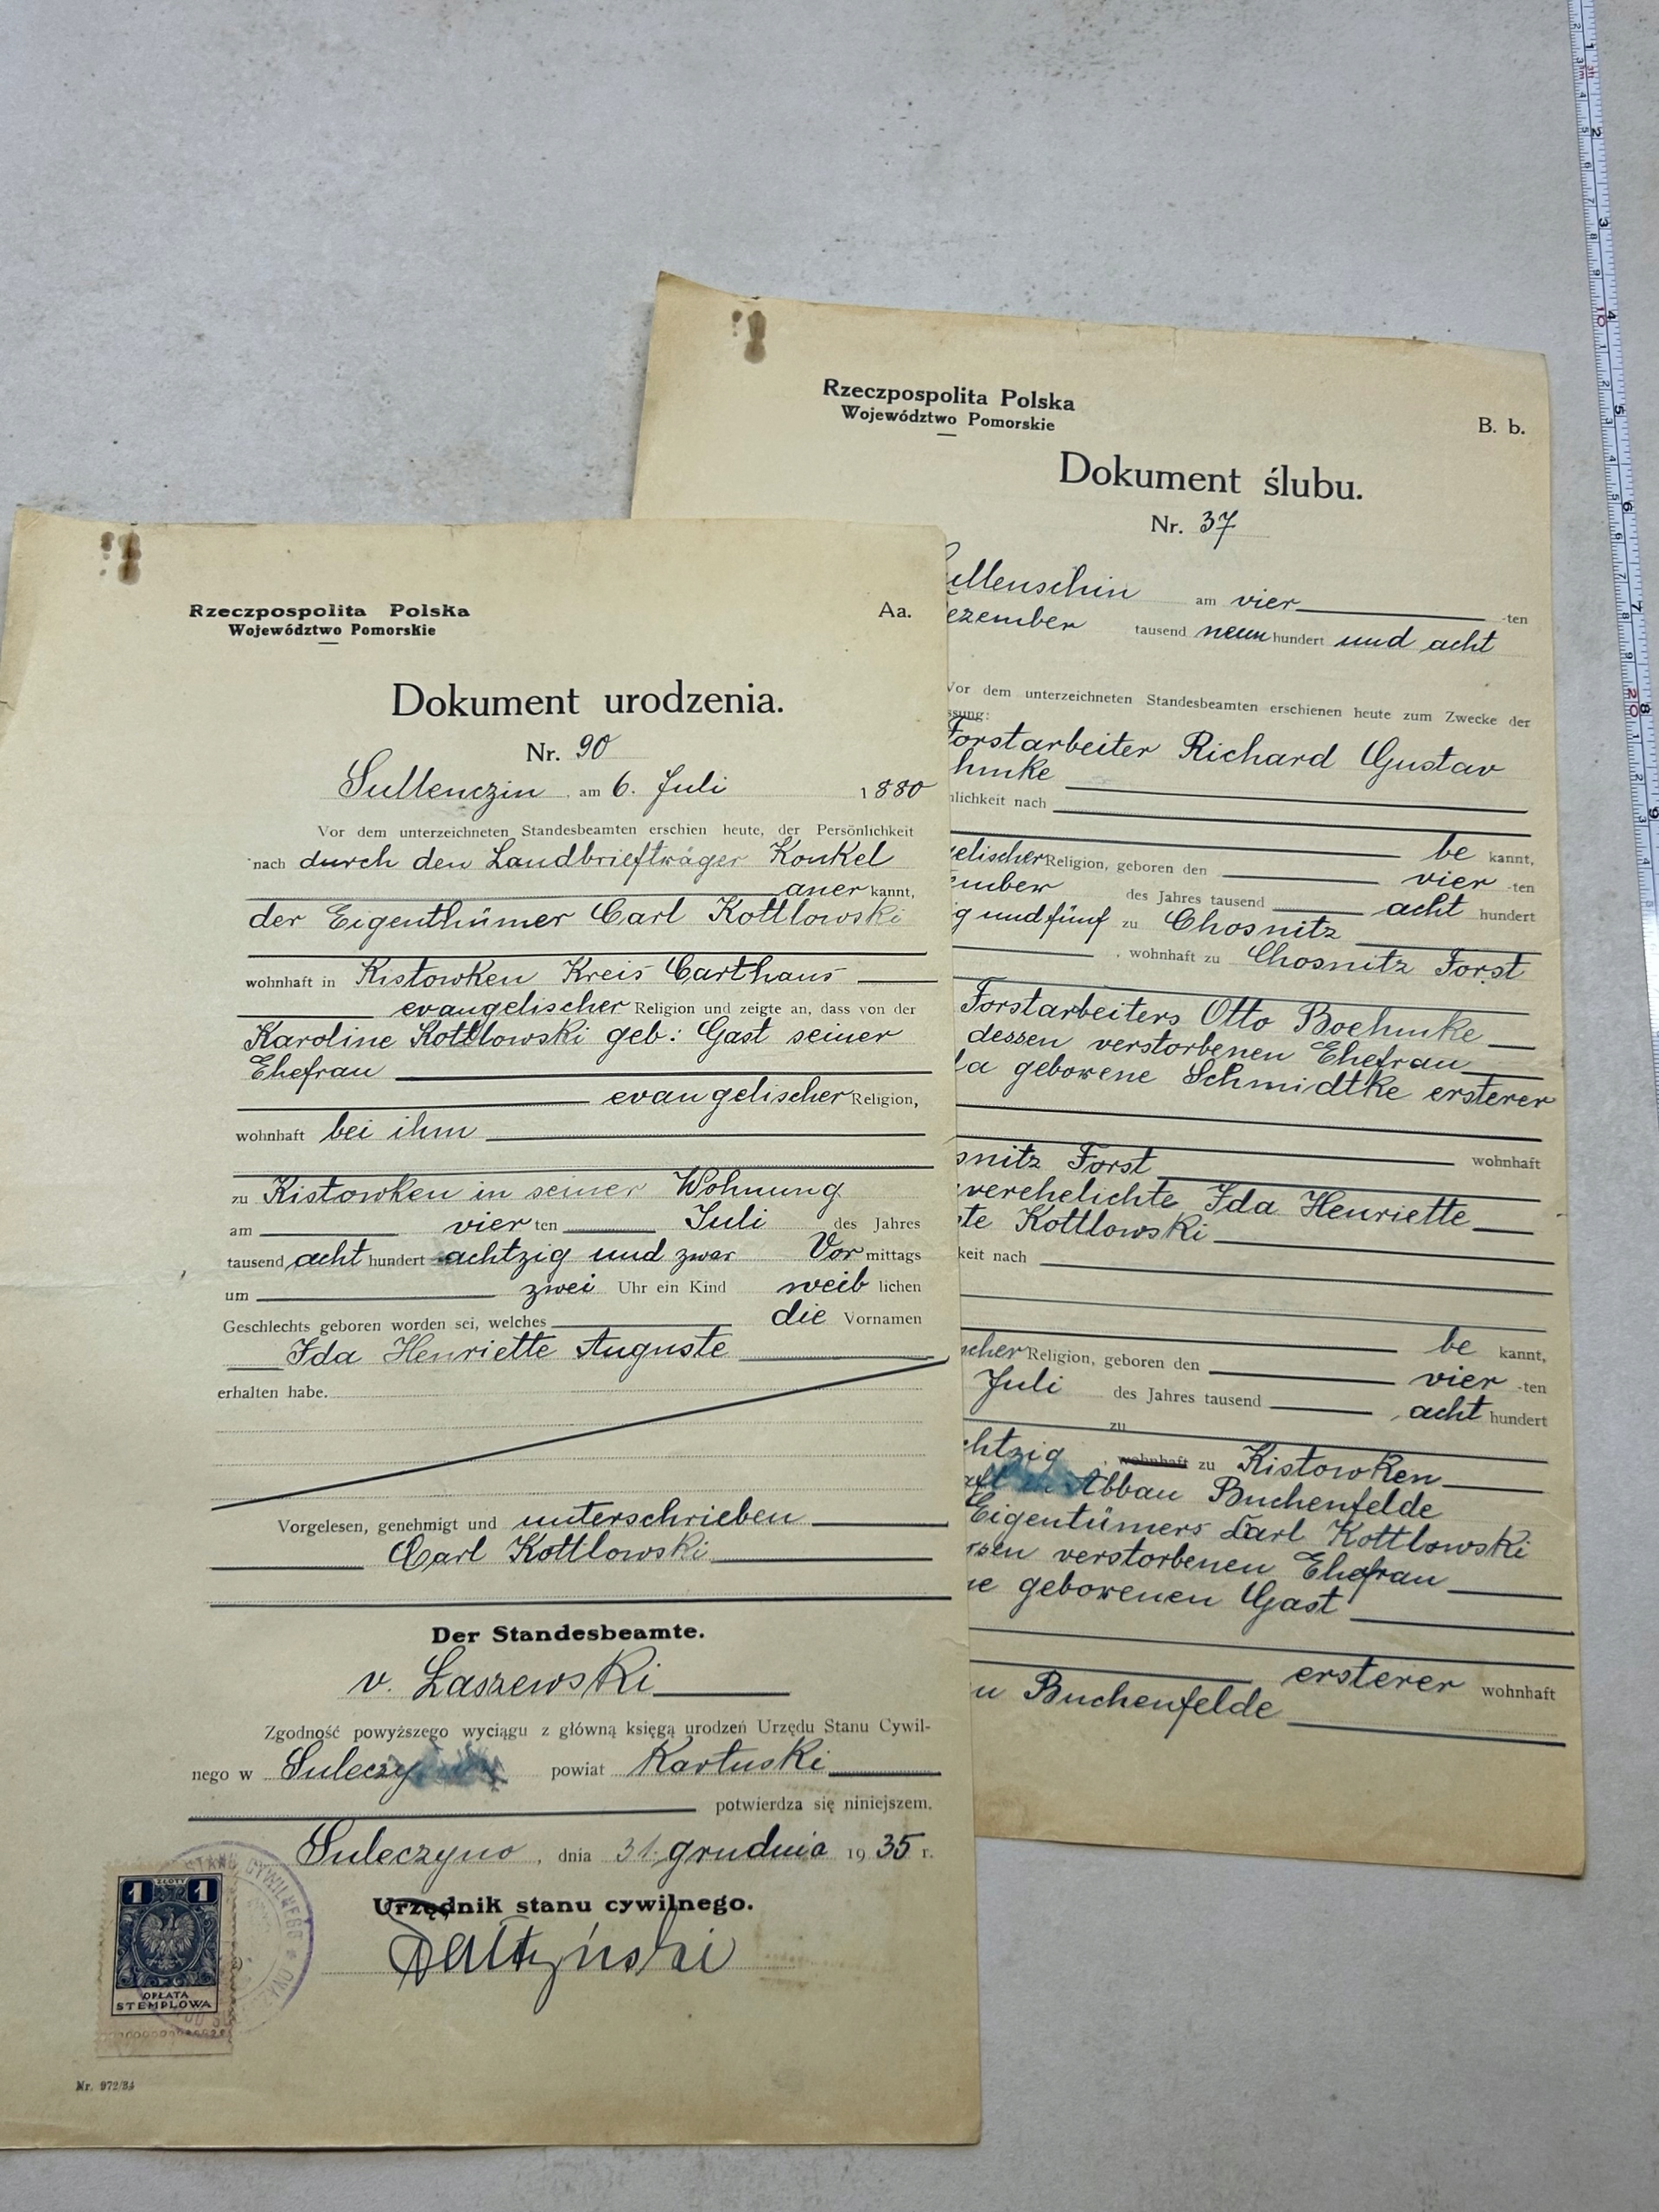 Rzeczpospolita Polska
Województwo Pomorskie
Aa.
Dokument urodzenia.
Nr. 90
Sullenczin, am 6. Juli 1880
Vor dem unterzeichneten Standesbeamten erschien heute, der Persönlichkeit
nach durch den Landbriefträger Konkel
aner kannt,
der Eigenthümer Carl Kottlowski
wohnhaft in Kistowken Kreis Carthaus
evangelischer Religion und zeigte an, dass von der
Karoline Kottlowski geb: Gast seiner
Ehefrau
evangelischer Religion,
wohnhaft bei ihm
zu Kistowken in seiner Wohnung
am vier ten Juli des Jahres
tausend acht hundert achtzig und zwar Vor mittags
um zwei Uhr ein Kind weib lichen
Geschlechts geboren worden sei, welches die Vornamen
Ida Henriette Auguste
erhalten habe.
Vorgelesen, genehmigt und unterschrieben
Carl Kottlowski
Der Standesbeamte.
v. Łaszewski
Zgodność powyższego wyciągu z główną księgą urodzeń Urzędu Stanu Cywil-
nego w Suleczy powiat Kartuski
potwierdza się niniejszem.
Suleczyno, dnia 31. grudnia 1935 r.
Urzędnik stanu cywilnego.
STANU CYWILNEGO
1 ZŁOTY 1
OPŁATA
STEMPLOWA
Nr. 972/34
Rzeczpospolita Polska
Województwo Pomorskie
B. b.
Dokument ślubu.
Nr. 37
ullenschin am vier -ten
ezember tausend neun hundert und acht
Vor dem unterzeichneten Standesbeamten erschienen heute zum Zwecke der
ssung:
Forstarbeiter Richard Gustav
hmke
nlichkeit nach
be kannt,
gelischer Religion, geboren den vier -ten
ember des Jahres tausend acht hundert
g und fünf zu Chosnitz
, wohnhaft zu Chosnitz Forst
Forstarbeiters Otto Boehmke
dessen verstorbenen Ehefrau
la geborene Schmidtke ersterer
wohnhaft
snitz Forst
verehelichte Ida Henriette
te Kottlowski
keit nach
be kannt,
scher Religion, geboren den vier -ten
Juli des Jahres tausend acht hundert
zu
chtzig, wohnhaft zu Kistowken
Abbau Buchenfelde
Eigentümers Carl Kottlowski
ssen verstorbenen Ehefrau
ne geborenen Gast
ersterer wohnhaft
u Buchenfelde